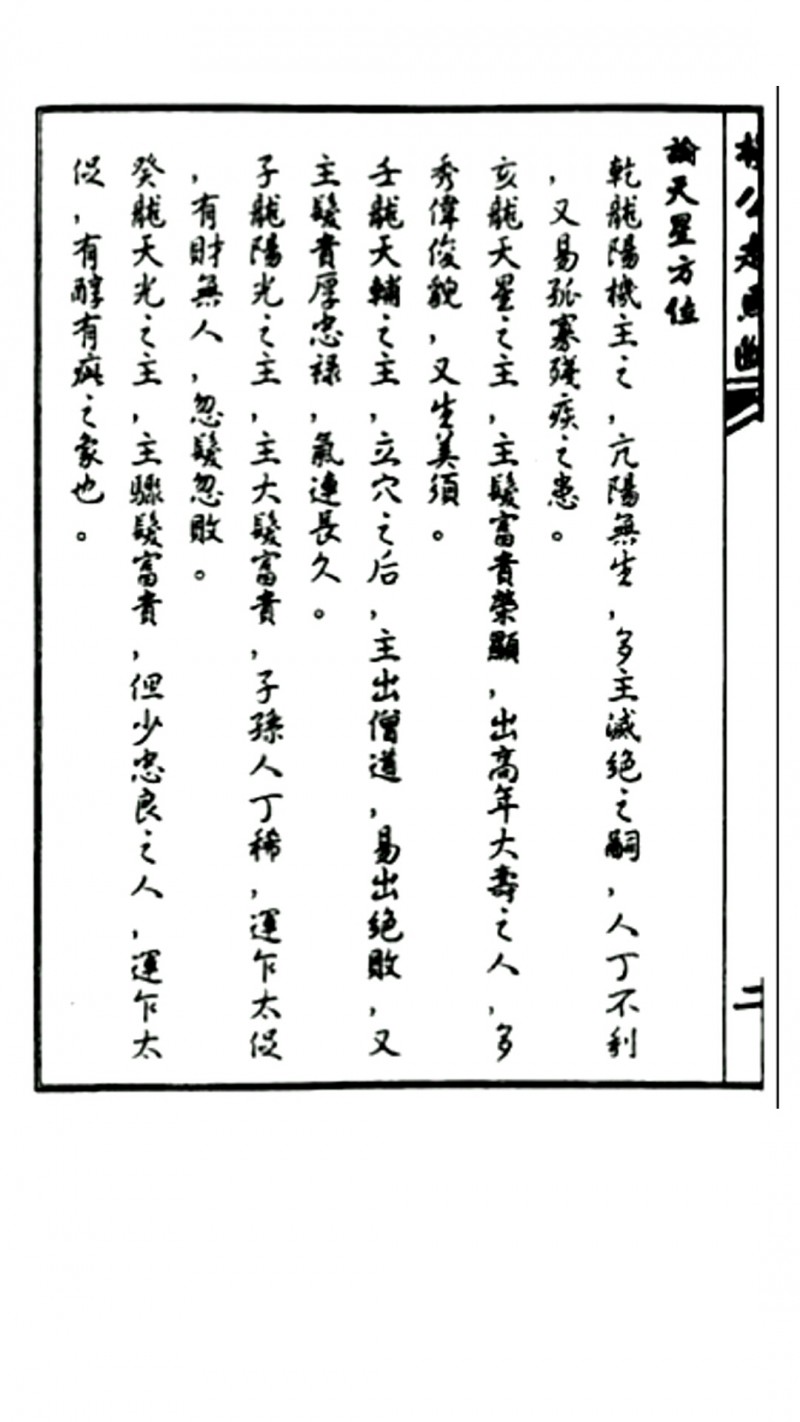 楊公走馬斷
二
論天星方位
乾龍陽機主之，亢陽無生，多主滅絕之嗣，人丁不利
，又易孤寡殘疾之患。
亥龍天星之主，主髮富貴榮顯，出高年大壽之人，多
秀偉俊貌，又生美須。
壬龍天輔之主，立穴之后，主出僧道，易出絕敗，又
主髮貴厚忠祿，氣連長久。
子龍陽光之主，主大髮富貴，子孫人丁稀，運乍太促
，有財無人，忽髮忽敗。
癸龍天光之主，主驟髮富貴，但少忠良之人，運乍太
促，有醇有疵之象也。